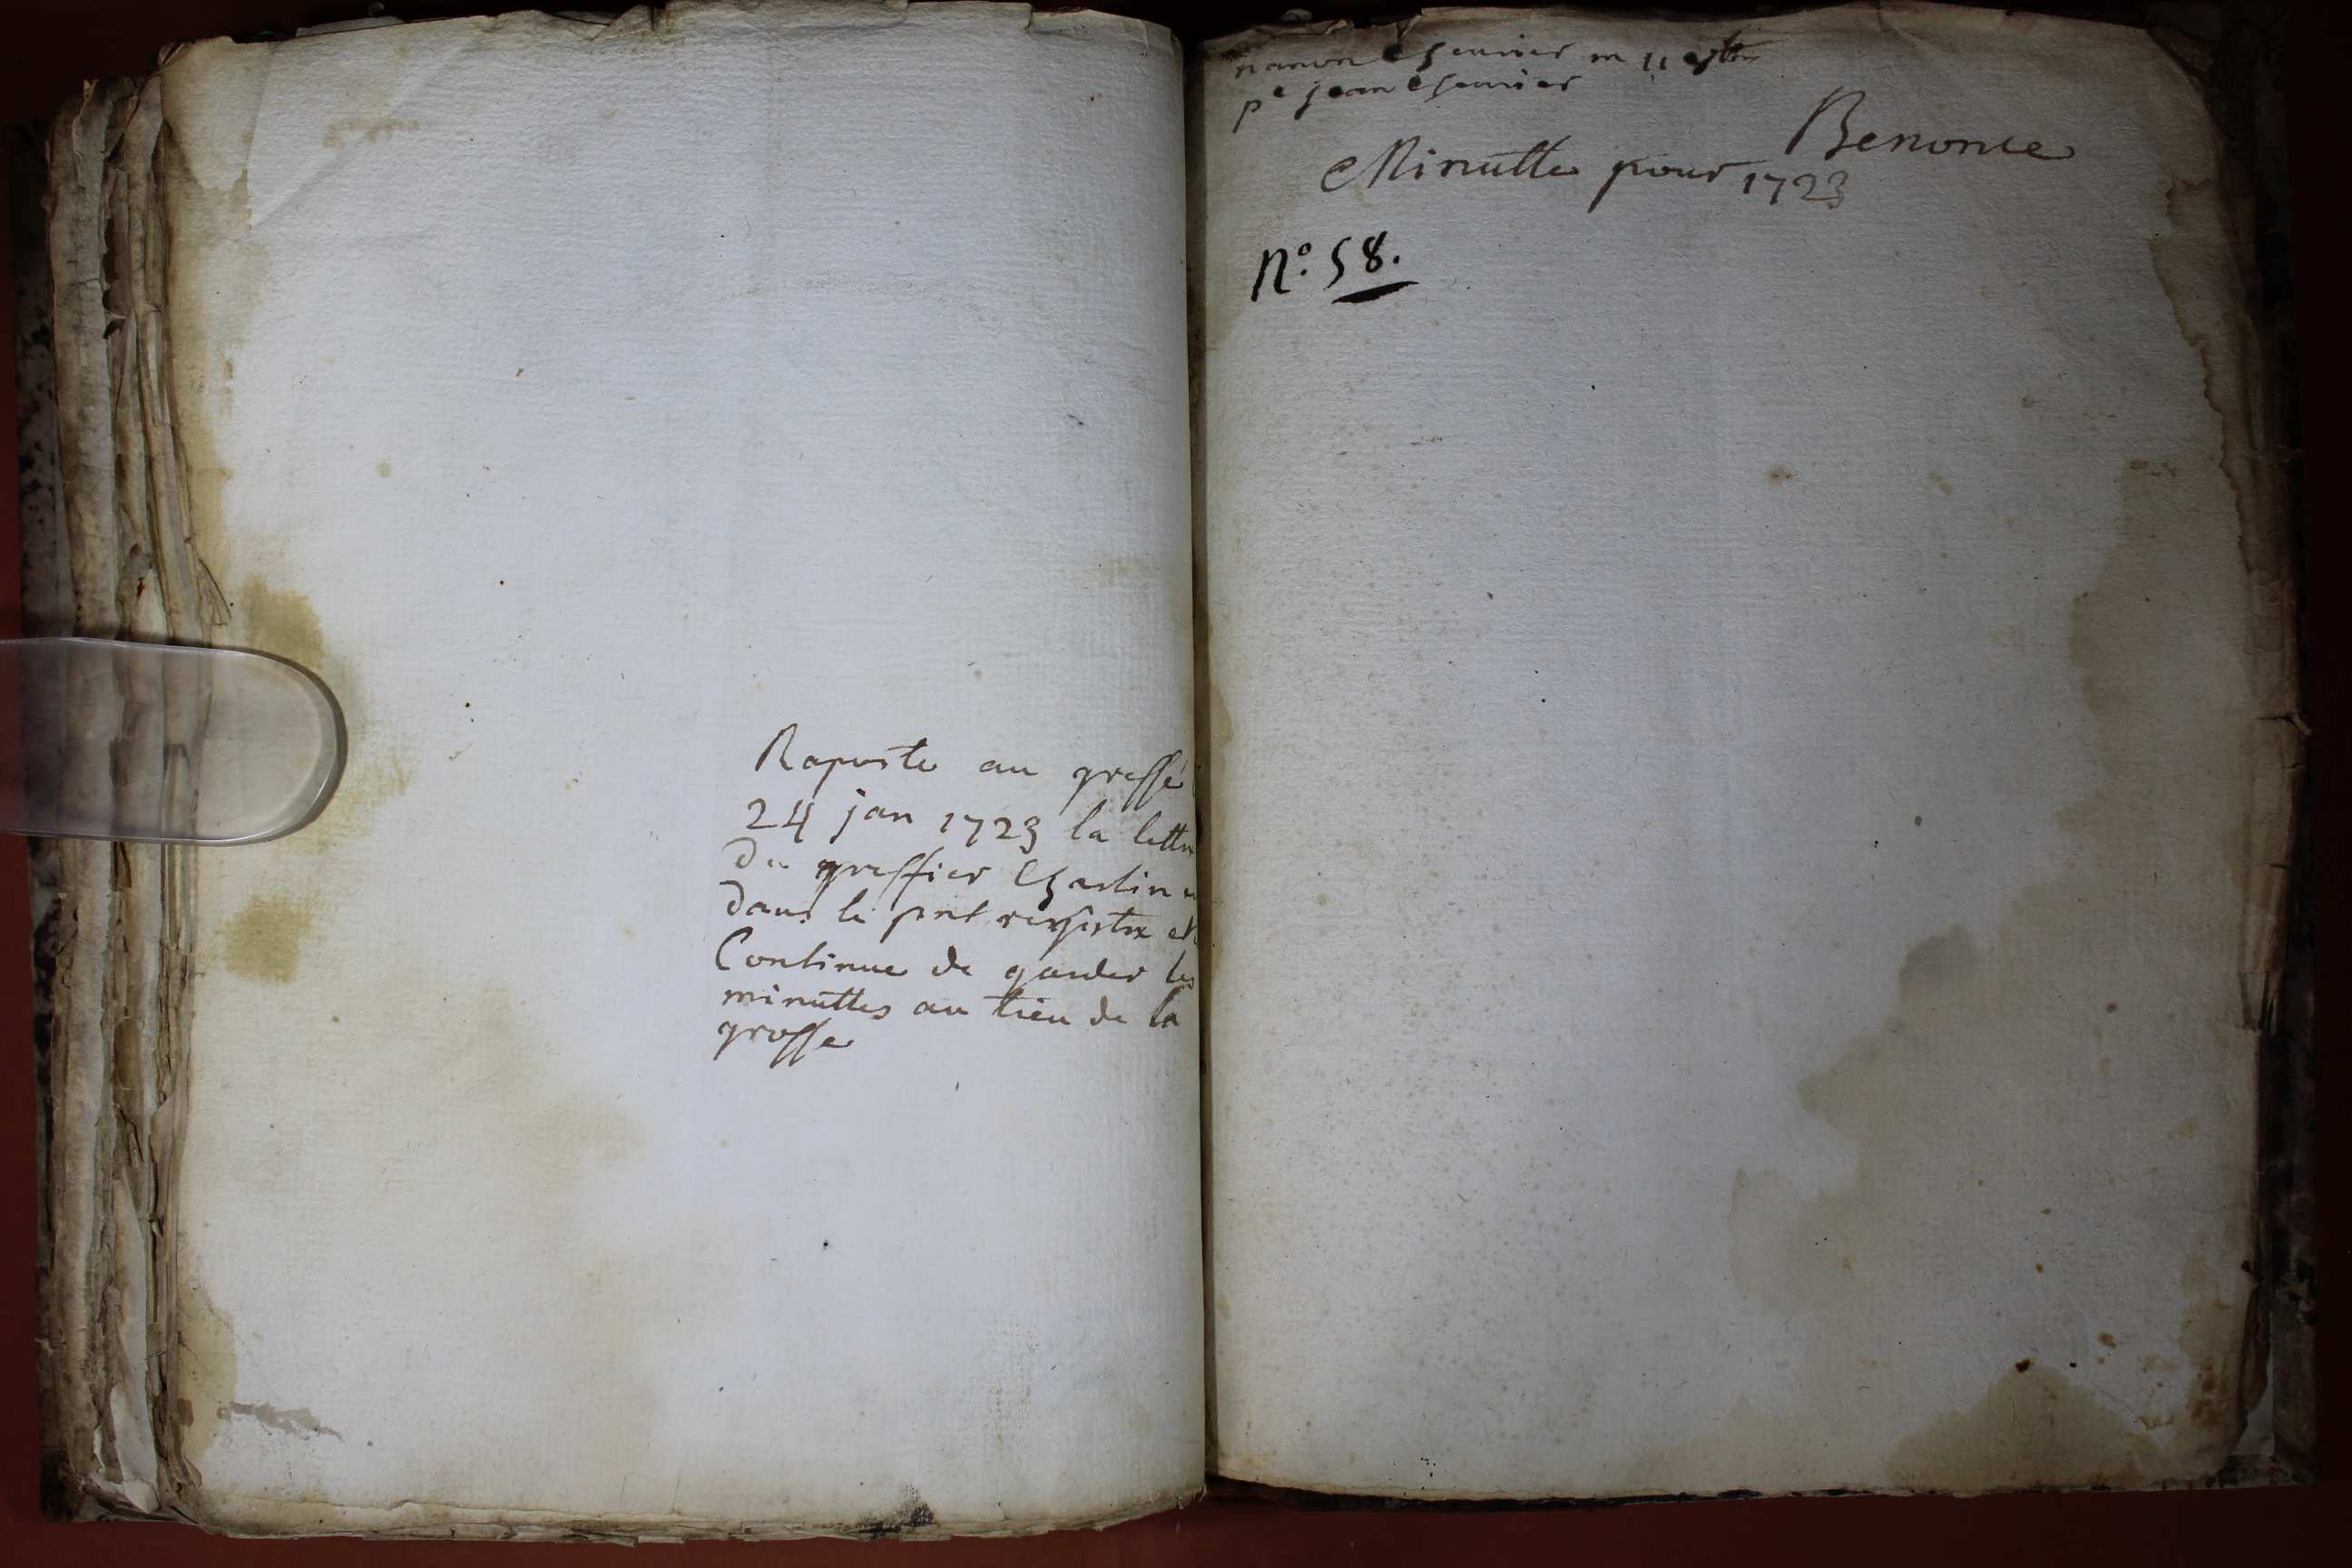 Raporte au greffe
24 jan 1723 la lettre
du greffier Charlin
dans le pnt registre et
Continue de garder les
minuttes au lieu de la
grosse
nanon Chennier m 11
pe jean Chennier
Benonce
Minutte pour 1723
No. 58.